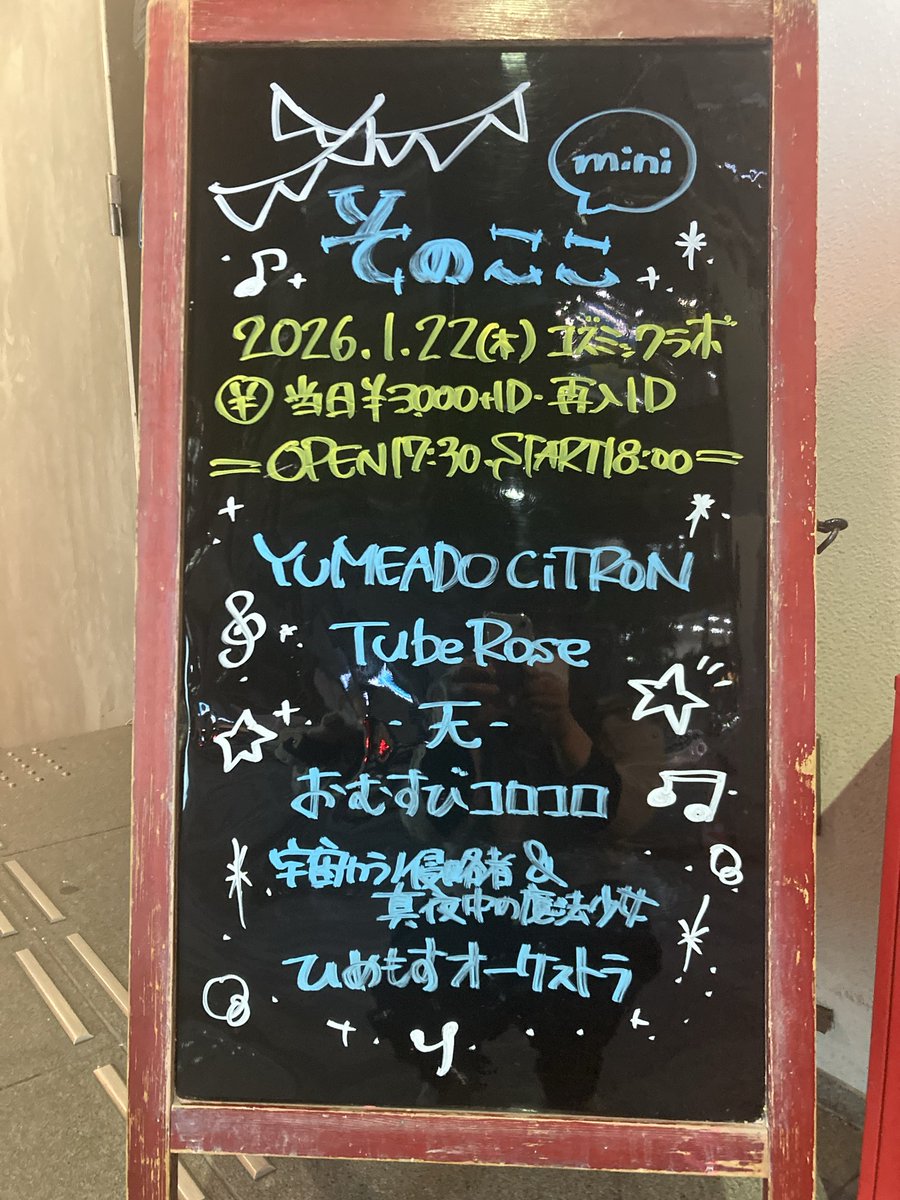 mini
そのここ
2026.1.22(木) コズミックラボ
¥ 当日¥3000+1D・再入1D
=OPEN17:30.START18:00=
YUMEADO CiTRON
TubeRose
-天-
おむすびコロコロ
宇宙からの侵略者&
真夜中の魔法少女
ひめもすオーケストラ